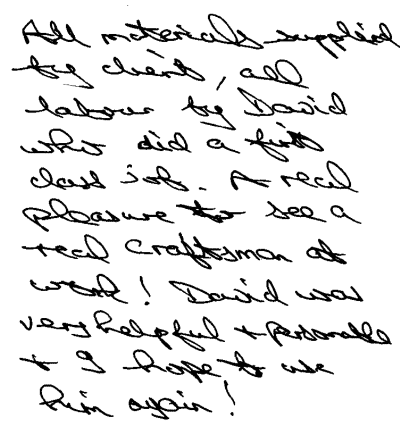 All materials supplied
by client, all
labour by David
who did a first
class job. A real
pleasure to see a
real craftsman at
work! David was
very helpful + personable
+ I hope to use
him again!